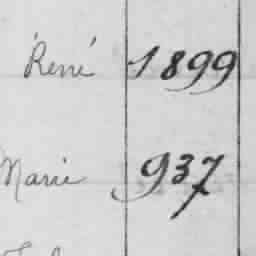 René 1899
Marie 937